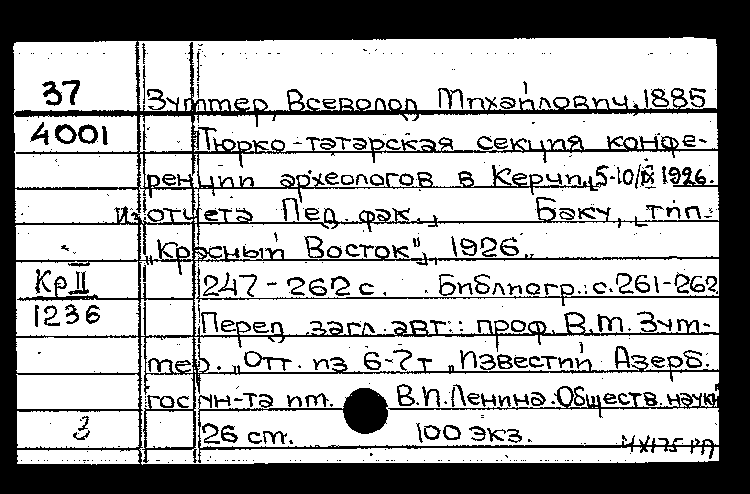 37 Зуммер, Всеволод Михайлович, 1885
4001 Тюрко-татарская секция конфе-
ренции археологов в Керчи, 5-10/IX 1926.
Из отчета Пед. фак., Баку, тип.
"Красный Восток", 1926.
Кр II 247-262 с. Библиогр.: с. 261-262
1236 Перед загл. авт.: проф. В.М. Зум-
мер. "Отт. из 6-7 т "Известий Азерб.
гос ун-та им. В.И. Ленина. Обществ. науки
3 26 см. 100 экз.